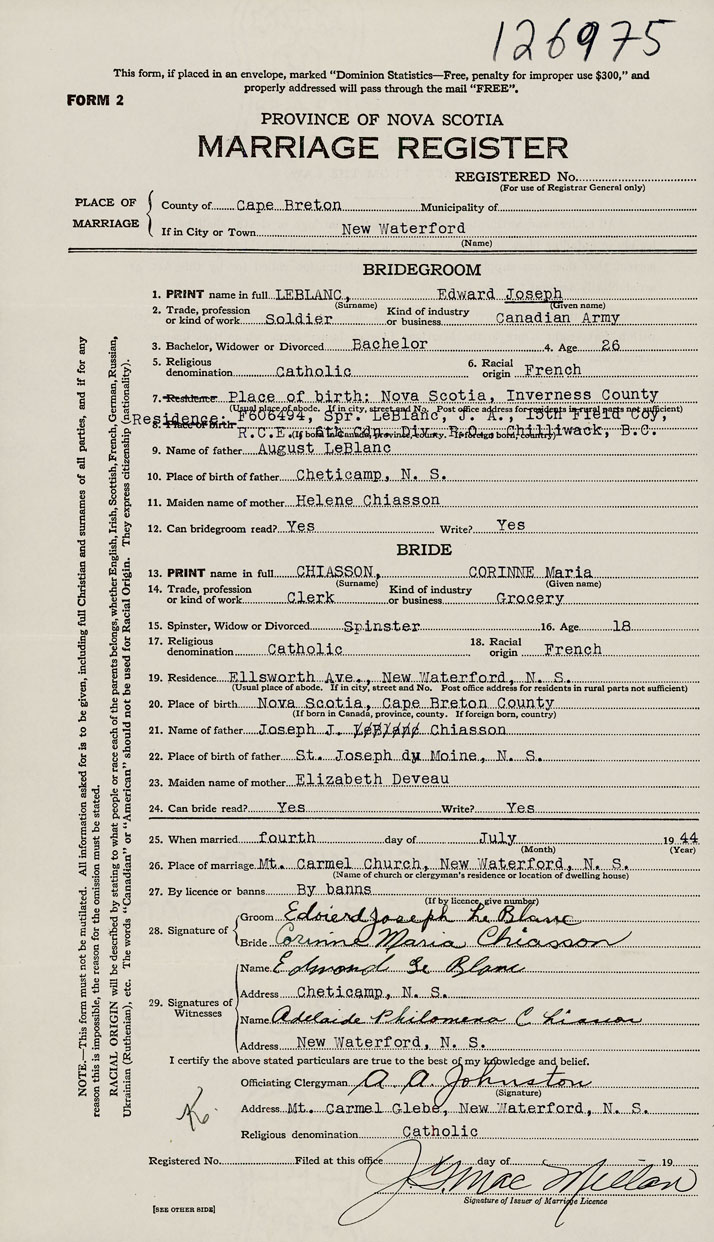 126975
This form, if placed in an envelope, marked “Dominion Statistics—Free, penalty for improper use $300,” and
properly addressed will pass through the mail “FREE”.
FORM 2
PROVINCE OF NOVA SCOTIA
MARRIAGE REGISTER
REGISTERED No.
(For use of Registrar General only)
PLACE OF MARRIAGE
County of Cape Breton Municipality of
If in City or Town New Waterford
(Name)
BRIDEGROOM
1. PRINT name in full LEBLANC, Edward Joseph
(Surname) (Given name)
2. Trade, profession or kind of work Soldier Kind of industry or business Canadian Army
3. Bachelor, Widower or Divorced Bachelor 4. Age 26
5. Religious denomination Catholic 6. Racial origin French
7. Residence Place of birth: Nova Scotia, Inverness County
(Usual place of abode. If in city, street and No. Post office address for residents in rural parts not sufficient)
8. Place of birth Residence: F606494, Spr. LeBlanc, J. A., 15th Field Coy,
R.C.E., 6th Cdn. Div. P.O., Chilliwack, B.C.
(If born in Canada, province, county. If foreign born, country)
9. Name of father August LeBlanc
10. Place of birth of father Cheticamp, N. S.
11. Maiden name of mother Helene Chiasson
12. Can bridegroom read? Yes Write? Yes
BRIDE
13. PRINT name in full CHIASSON, CORINNE Maria
(Surname) (Given name)
14. Trade, profession or kind of work Clerk Kind of industry or business Grocery
15. Spinster, Widow or Divorced Spinster 16. Age 18
17. Religious denomination Catholic 18. Racial origin French
19. Residence Ellsworth Ave., New Waterford, N. S.
(Usual place of abode. If in city, street and No. Post office address for residents in rural parts not sufficient)
20. Place of birth Nova Scotia, Cape Breton County
(If born in Canada, province, county. If foreign born, country)
21. Name of father Joseph J. LeBlanc Chiasson
22. Place of birth of father St. Joseph du Moine, N. S.
23. Maiden name of mother Elizabeth Deveau
24. Can bride read? Yes Write? Yes
25. When married fourth day of July 19 44
(Month) (Year)
26. Place of marriage Mt. Carmel Church, New Waterford, N. S.
(Name of church or clergyman's residence or location of dwelling house)
27. By licence or banns By banns
(If by licence, give number)
28. Signature of
Groom Edward Joseph Le Blanc
Bride Corinne Maria Chiasson
29. Signatures of Witnesses
Name Edmond Le Blanc
Address Cheticamp, N. S.
Name Adelaide Philomena Chiasson
Address New Waterford, N. S.
I certify the above stated particulars are true to the best of my knowledge and belief.
Officiating Clergyman A. A. Johnston
(Signature)
Address Mt. Carmel Glebe, New Waterford, N. S.
Religious denomination Catholic
Registered No. Filed at this office day of 19
J. G. MacMillan
Signature of Issuer of Marriage Licence
[SEE OTHER SIDE]
NOTE.—This form must not be mutilated. All information asked for is to be given, including full Christian and surnames of all parties, and if for any
reason this is impossible, the reason for the omission must be stated.
RACIAL ORIGIN will be described by stating to what people or race each of the parents belongs, whether English, Irish, Scottish, French, German, Russian,
Ukrainian (Ruthenian), etc. The words “Canadian” or “American” should not be used for Racial Origin. They express citizenship (nationality).